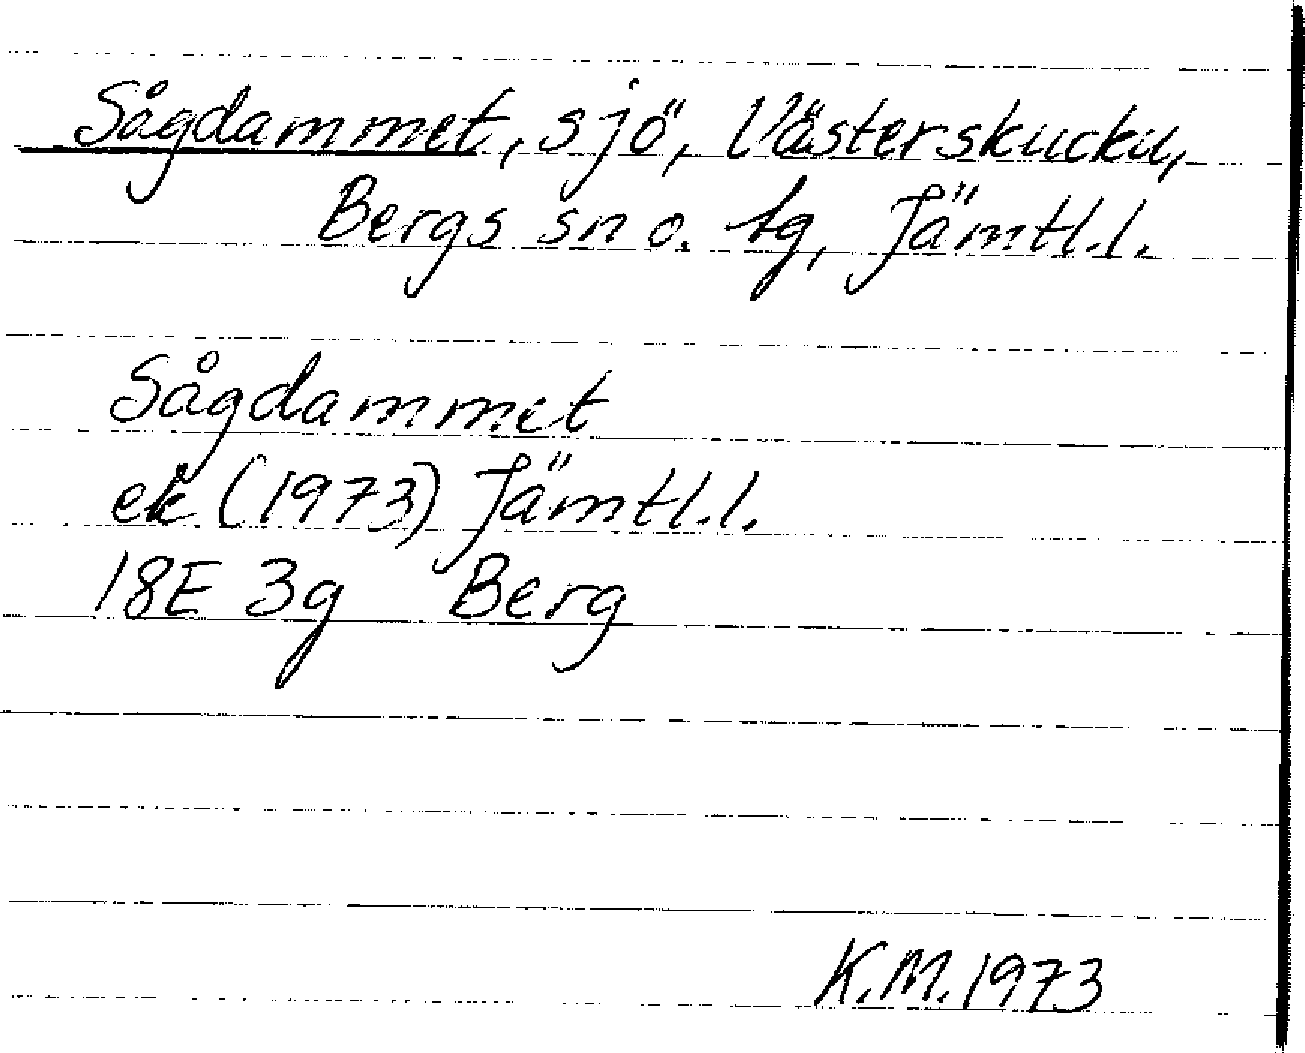 Sågdammet, sjö, Västerskucku,
Bergs sn o. tg, Jämtl.l.
Sågdammet
ek (1973) Jämtl.l.
18E 3g Berg
K.M. 1973